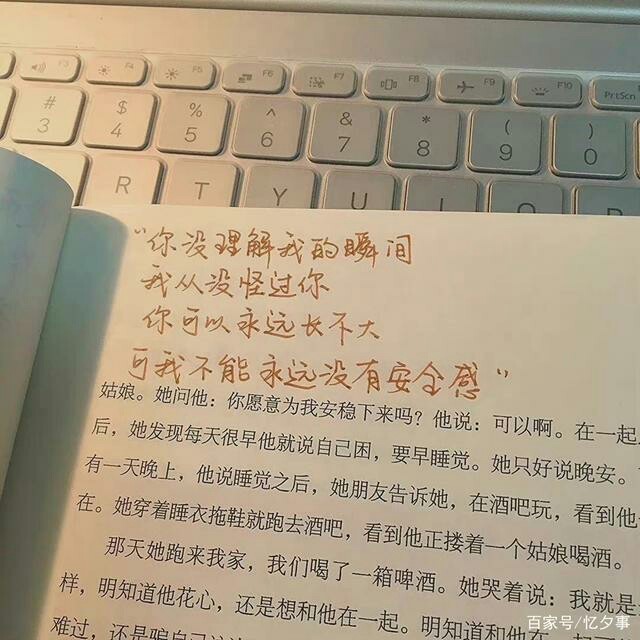 F3
F4
F5
F6
F7
F8
F9
F10
PrtScn
# 3
$ 4
% 5
^ 6
& 7
* 8
( 9
) 0
R
T
Y
U
“你没理解我的瞬间
我从没怪过你
你可以永远长不大
可我不能永远没有安全感”
姑娘。她问他：你愿意为我安稳下来吗？他说：可以啊。在一起
后，她发现每天很早他就说自己困，要早睡觉。她只好说晚安。
有一天晚上，他说睡觉之后，她朋友告诉她，在酒吧玩，看到他
在。她穿着睡衣拖鞋就跑去酒吧，看到他正搂着一个姑娘喝酒。
那天她跑来我家，我们喝了一箱啤酒。她哭着说：我就是
样，明知道他花心，还是想和他在一起。明知道和他在一起
难过，还是骗自己
百家号/忆夕事